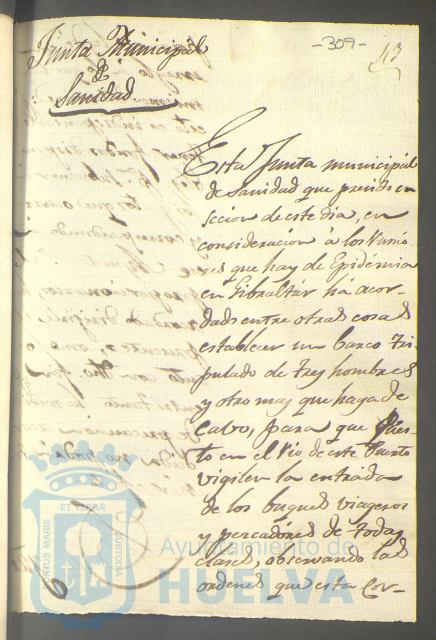 -309-
43
Junta Municipal
de
Sanidad.
Esta Junta municipal
de Sanidad que presido en
seccion de este dia, en
consideracion à los rumo
res que hay de Epidémia
en Gibraltár ha acor
dado entre otras cosas
establecer un barco tri
pulado de tres hombres
y otro mas que haga de
Cabo, para que puес
to en el Rio de este Puerto
vigilen la entrada
de los buques viageros
y pescadores de todas
clases, observando las
ordenes que esta Cor-
ET TERRÆ
PORTUS MARIS
CUSTODIA
Ayuntamiento de
HUELVA